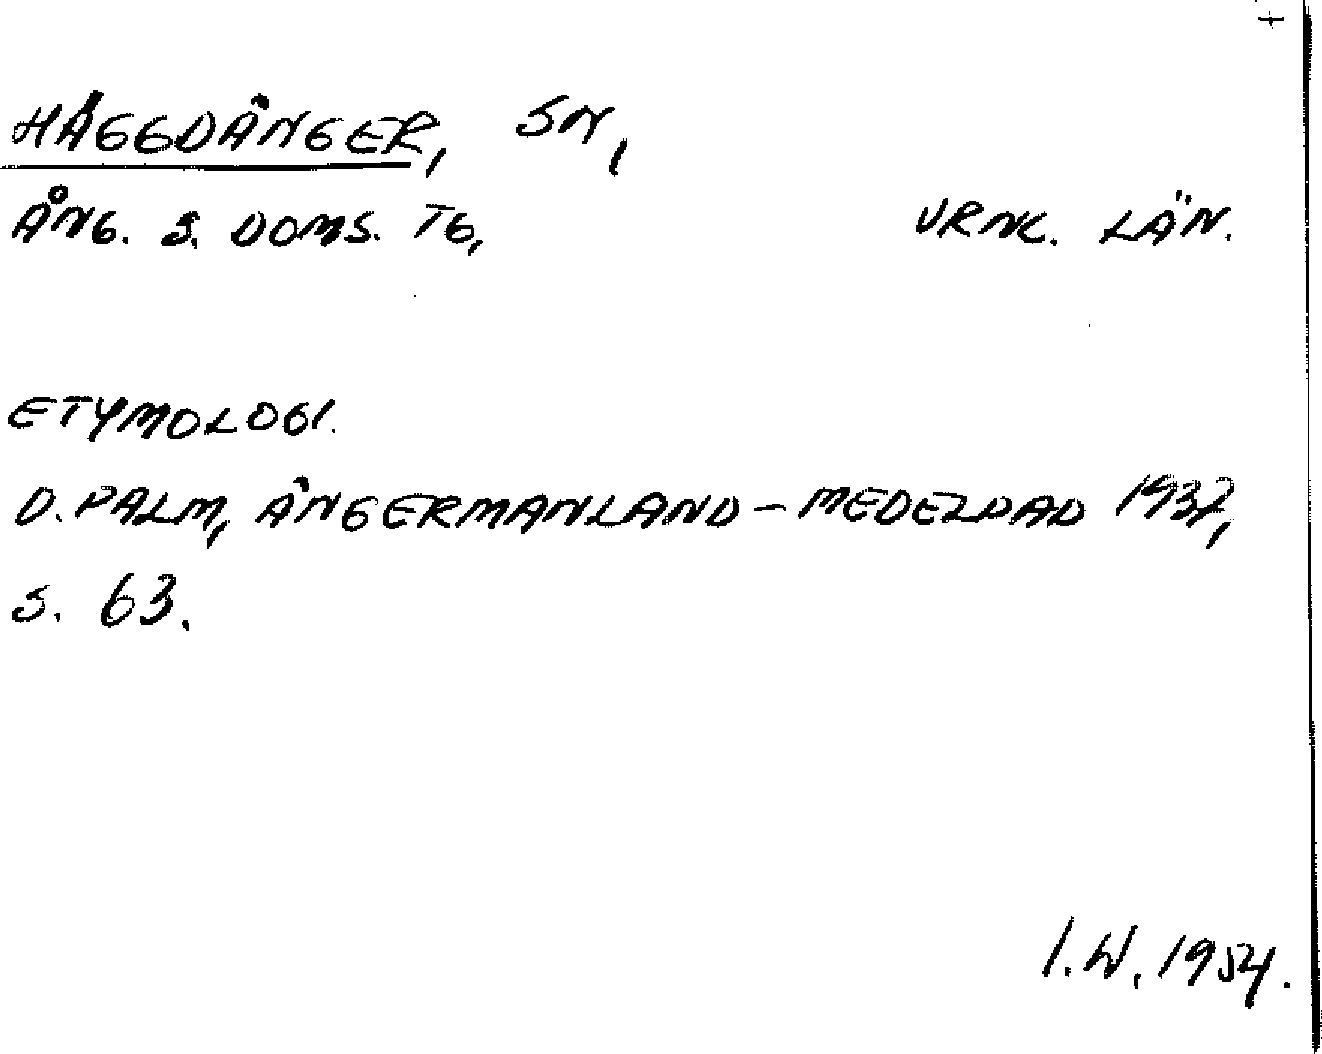 +
HÄGGDÅNGER, SN,
ÅNG. S. DOMS. TG, VRNL. LÄN.
ETYMOLOGI.
D. PALM, ÅNGERMANLAND - MEDELPAD 1937,
S. 63.
I.W. 1954.